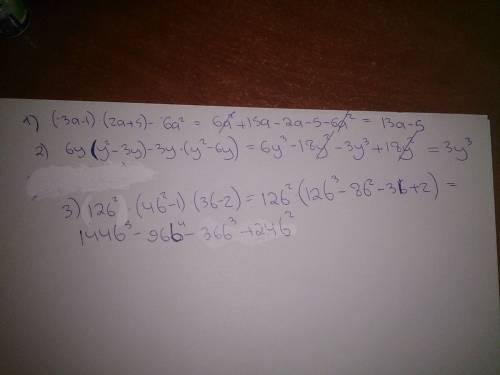 1) (-3a-1) (2a+5) - 6a² = 6a² + 15a - 2a - 5 - 6a² = 13a - 5
2) 6y (y² - 3y) - 3y · (y² - 6y) = 6y³ - 18y² - 3y³ + 18y² = 3y³
3) 12b² · (4b² - 1) (3b - 2) = 12b² (12b³ - 8b² - 3b + 2) =
144b⁵ - 96b⁴ - 36b³ + 24b²